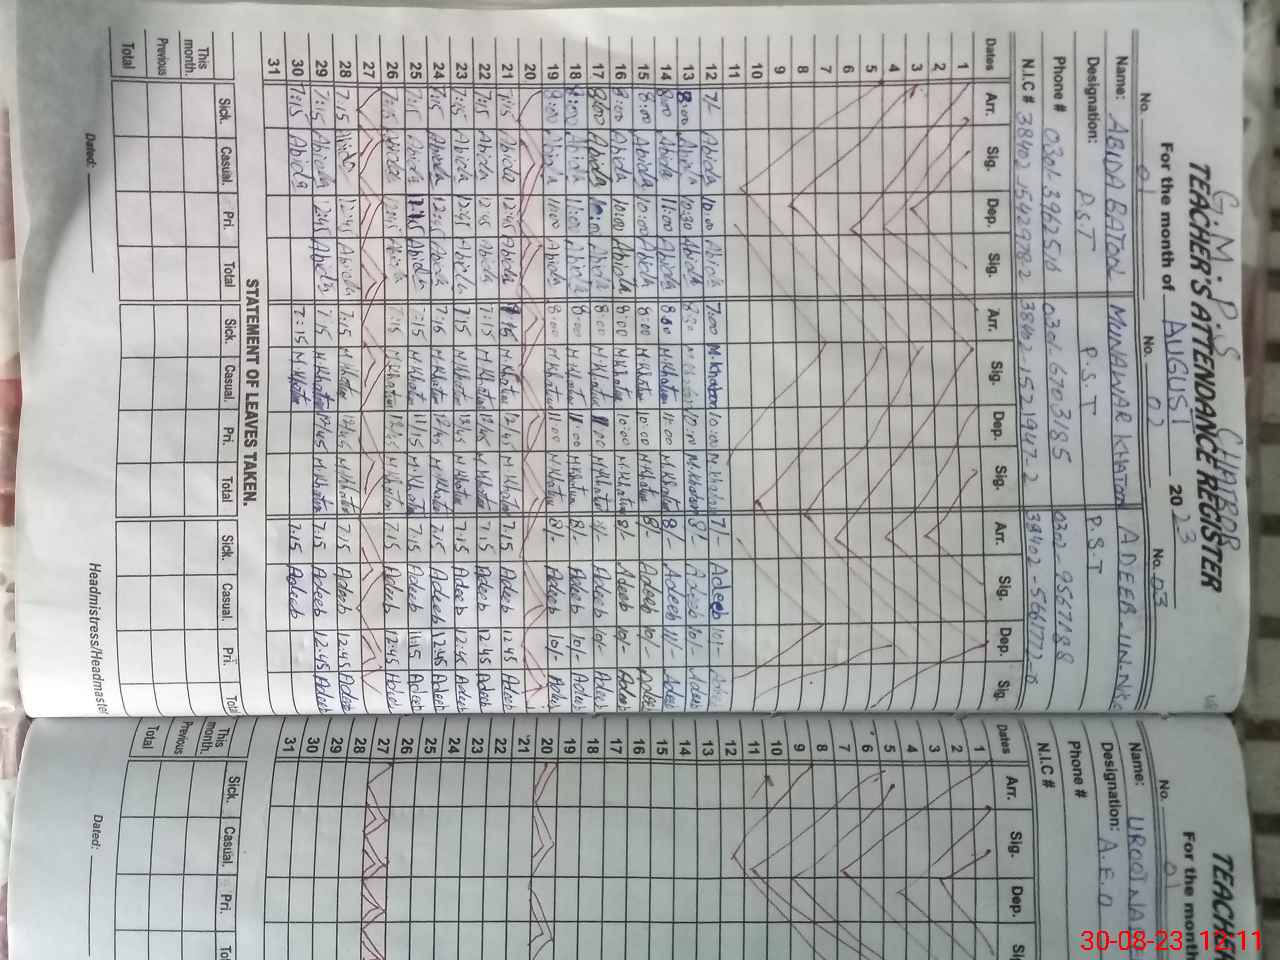 G.M.P.S CHATBOR
TEACHER'S ATTENDANCE REGISTER
For the month of AUGUST 2023
No. 01 No. 02 No. 03
Name: ABIDA BATOOL MUNAWAR KHATOON ADEEB-UN-NISA
Designation: P.S.T P.S.T P.S.T
Phone #
N.I.C #
Dates Arr. Sig. Dep. Sig. Arr. Sig. Dep. Sig. Arr. Sig. Dep. Sig.
1
2
3
4
5
6
7
8
9
10
11
12 7/- Abida 10:00 Abida 7:00 M.Khatoon 10:00 M.Khatoon 7/- Adeeb 10/-
13 8:00 Abida 10:30 Abida M.Khatoon 8/- Adeeb 10/- Adeeb
14 8:00 Abida 11:00 Abida M.Khatoon 11:00 M.Khatoon 8/- Adeeb 11/- Adeeb
15 8:00 Abida 10:00 Abida 8:00 M.Khatoon 10:00 M.Khatoon 8/- Adeeb 10/- Adeeb
16 8:00 Abida 10:00 Abida 8:00 M.Khatoon 10:00 M.Khatoon 8/- Adeeb 10/- Adeeb
17 8:00 Abida Abida 8:00 M.Khatoon 11:00 M.Khatoon 8/- Adeeb 10/- Adeeb
18 8:00 Abida 11:00 Abida 8:00 M.Khatoon 11:00 M.Khatoon 8/- Adeeb 10/- Adeeb
19 8:00 Abida 11:00 Abida 8:00 M.Khatoon 11:00 M.Khatoon 8/- Adeeb 10/- Adeeb
20
21 7:15 Abida 12:45 Abida M.Khatoon 12/45 M.Khatoon 7:15 Adeeb 12:45 Adeeb
22 7:15 Abida 12:45 Abida 7:15 M.Khatoon 12/45 M.Khatoon 7:15 Adeeb 12:45 Adeeb
23 7:15 Abida 12:45 Abida 7:15 M.Khatoon 12/45 M.Khatoon 7:15 Adeeb 12:45 Adeeb
24 7:15 Abida 12:45 Abida 7:15 M.Khatoon 12/45 M.Khatoon 7:15 Adeeb 12:45 Adeeb
25 7:15 Abida Abida 7:15 M.Khatoon 11/15 M.Khatoon 7:15 Adeeb 11:15 Adeeb
26 7:15 Abida 12:45 Abida 7:15 M.Khatoon 12/45 M.Khatoon 7:15 Adeeb 12:45 Adeeb
27
28 7:15 Abida 12:45 Abida 7:15 M.Khatoon 12/45 M.Khatoon 7:15 Adeeb 12:45 Adeeb
29 7:15 Abida 12:45 Abida 7:15 M.Khatoon 12/45 M.Khatoon 7:15 Adeeb 12:45 Adeeb
30 7:15 Abida 7:15 M.Khatoon 7:15 Adeeb
31
STATEMENT OF LEAVES TAKEN.
Sick. Casual. Pri. Total Sick. Casual. Pri. Total Sick. Casual. Pri. Total
This month.
Previous
Total
Dated: Headmistress/Headmaster
TEACHE
For the month
No. 01
Name: UROOJ
Designation: A.E.O
Phone #
N.I.C #
Dates Arr. Sig. Dep.
1
2
3
4
5
6
7
8
9
10
11
12
13
14
15
16
17
18
19
20
21
22
23
24
25
26
27
28
29
30
31
Sick. Casual. Pri.
This month.
Previous
Total
Dated:
30-08-23 12:11